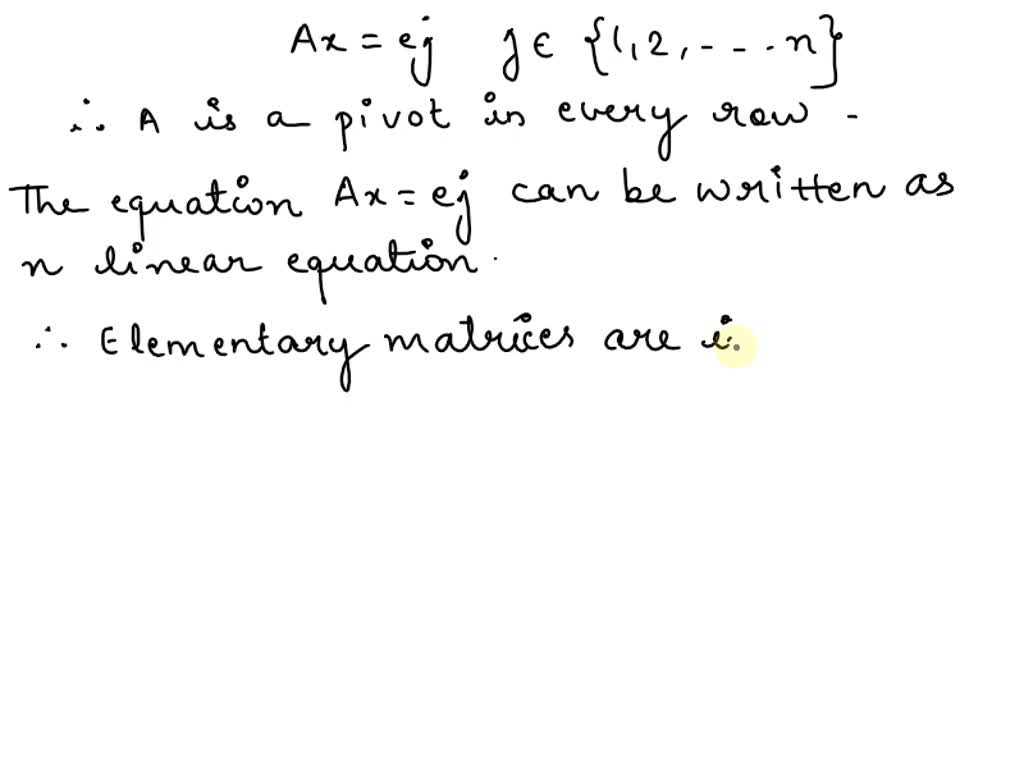 Ax = ej j ∈ {1,2,---.n}
∴ A is a pivot in every row.
The equation Ax = ej can be written as
n linear equation.
∴ Elementary matrices are i